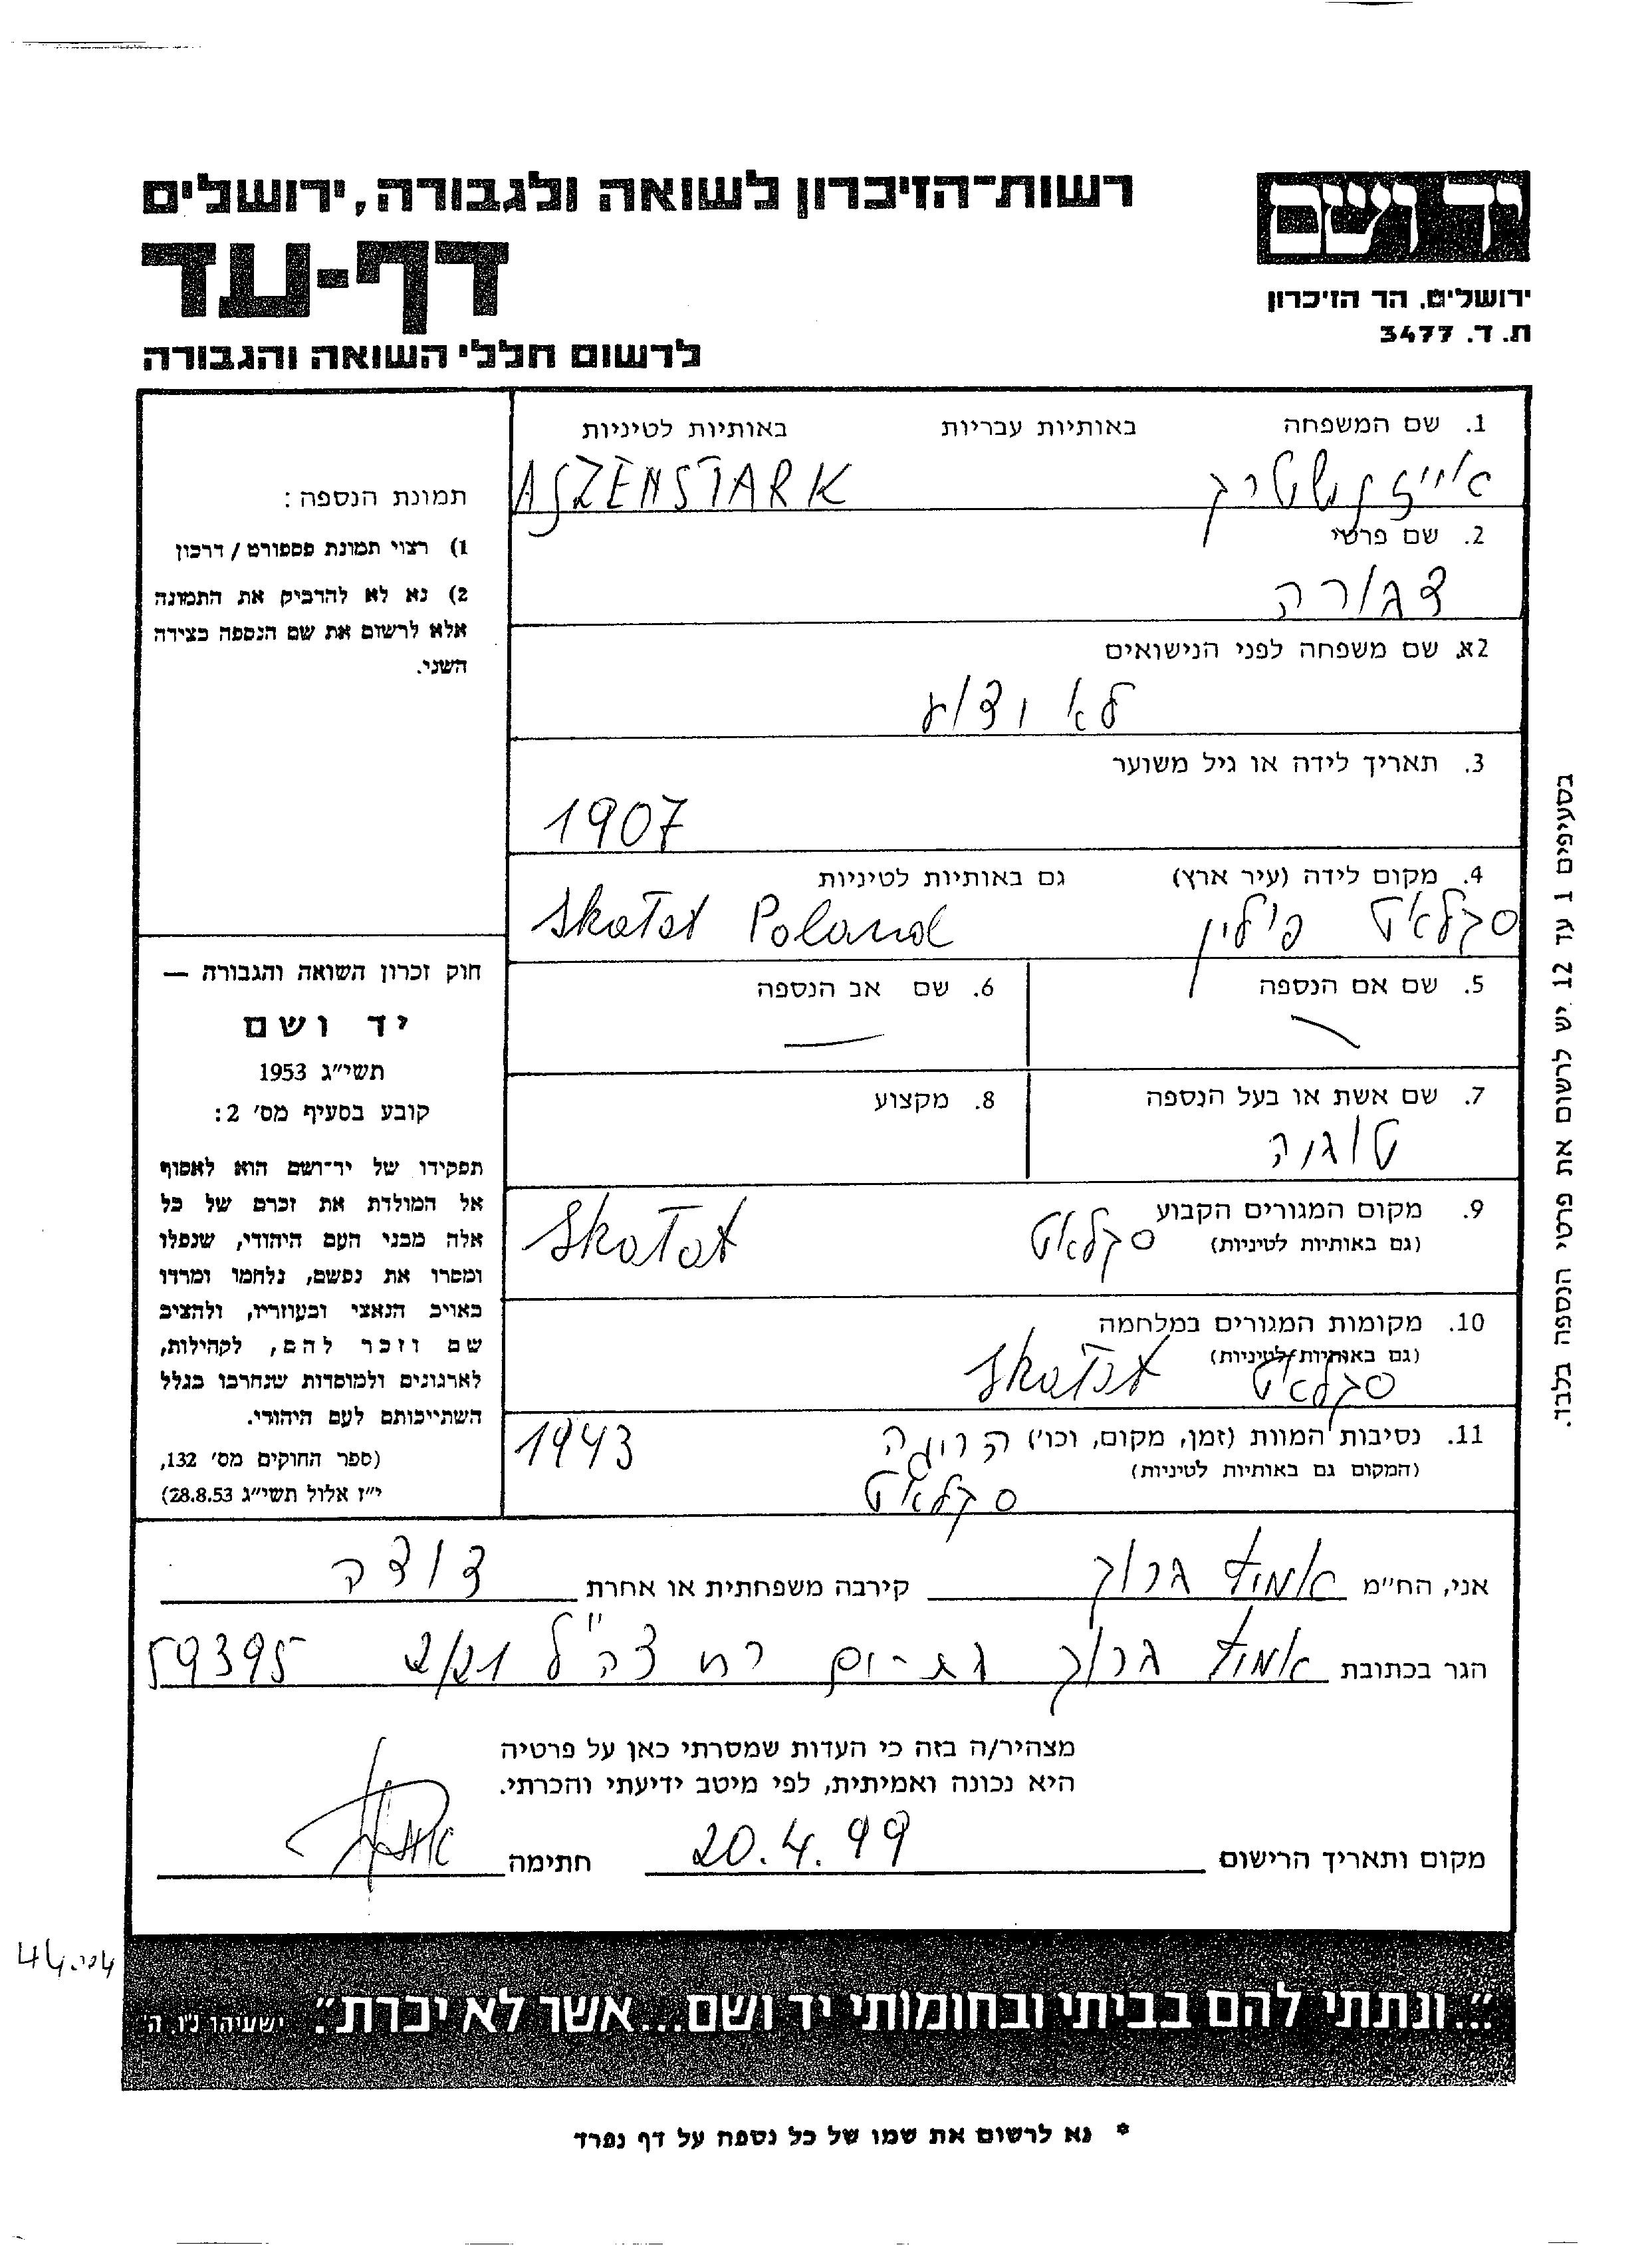 רשות־הזיכרון לשואה ולגבורה, ירושלים
דף-עד
לרשום חללי השואה והגבורה
יד ושם
ירושלים, הר הזיכרון
ת. ד. 3477
תמונת הנספה:
1) רצוי תמונת פספורט / דרכון
2) נא לא להדביק את התמונה
אלא לרשום את שם הנספה בצידה
השני.
חוק זכרון השואה והגבורה —
יד ושם
תשי״ג 1953
קובע בסעיף מס׳ 2:
תפקידו של יד־ושם הוא לאסוף
אל המולדת את זכרם של כל
אלה מבני העם היהודי, שנפלו
ומסרו את נפשם, נלחמו ומרדו
באויב הנאצי ובעוזריו, ולהציב
שם וזכר להם, לקהילות,
לארגונים ולמוסדות שנחרבו בגלל
השתייכותם לעם היהודי.
(ספר החוקים מס׳ 132,
י״ז אלול תשי״ג 28.8.53)
1. שם המשפחה באותיות עבריות באותיות לטיניות
אייזנשטרק ASZENSTARK
2. שם פרטי
דבורה
2א. שם משפחה לפני הנישואים
לא ידוע
3. תאריך לידה או גיל משוער
1907
4. מקום לידה (עיר ארץ) גם באותיות לטיניות
סקלאט פולין Skatat Poland
5. שם אם הנספה 6. שם אב הנספה
7. שם אשת או בעל הנספה 8. מקצוע
טובה
9. מקום המגורים הקבוע
(גם באותיות לטיניות)
סקלאט Skatat
10. מקומות המגורים במלחמה
(גם באותיות לטיניות)
סקלאט Skatat
11. נסיבות המוות (זמן, מקום, וכו׳) הרוגה 1943
(המקום גם באותיות לטיניות)
סקלאט
אני, הח״מ ברוך קירבה משפחתית או אחרת דודה
הגר בכתובת ברוך בת-ים רח צה"ל 59395
מצהיר/ה בזה כי העדות שמסרתי כאן על פרטיה
היא נכונה ואמיתית, לפי מיטב ידיעתי והכרתי.
מקום ותאריך הרישום 20.4.99 חתימה
״...ונתתי להם בביתי ובחומותי יד ושם...אשר לא יכרת״. ישעיהו נ״ו ה׳
* נא לרשום את שמו של כל נספה על דף נפרד
בסעיפים 1 עד 12 יש לרשום את פרטי הנספה בלבד.